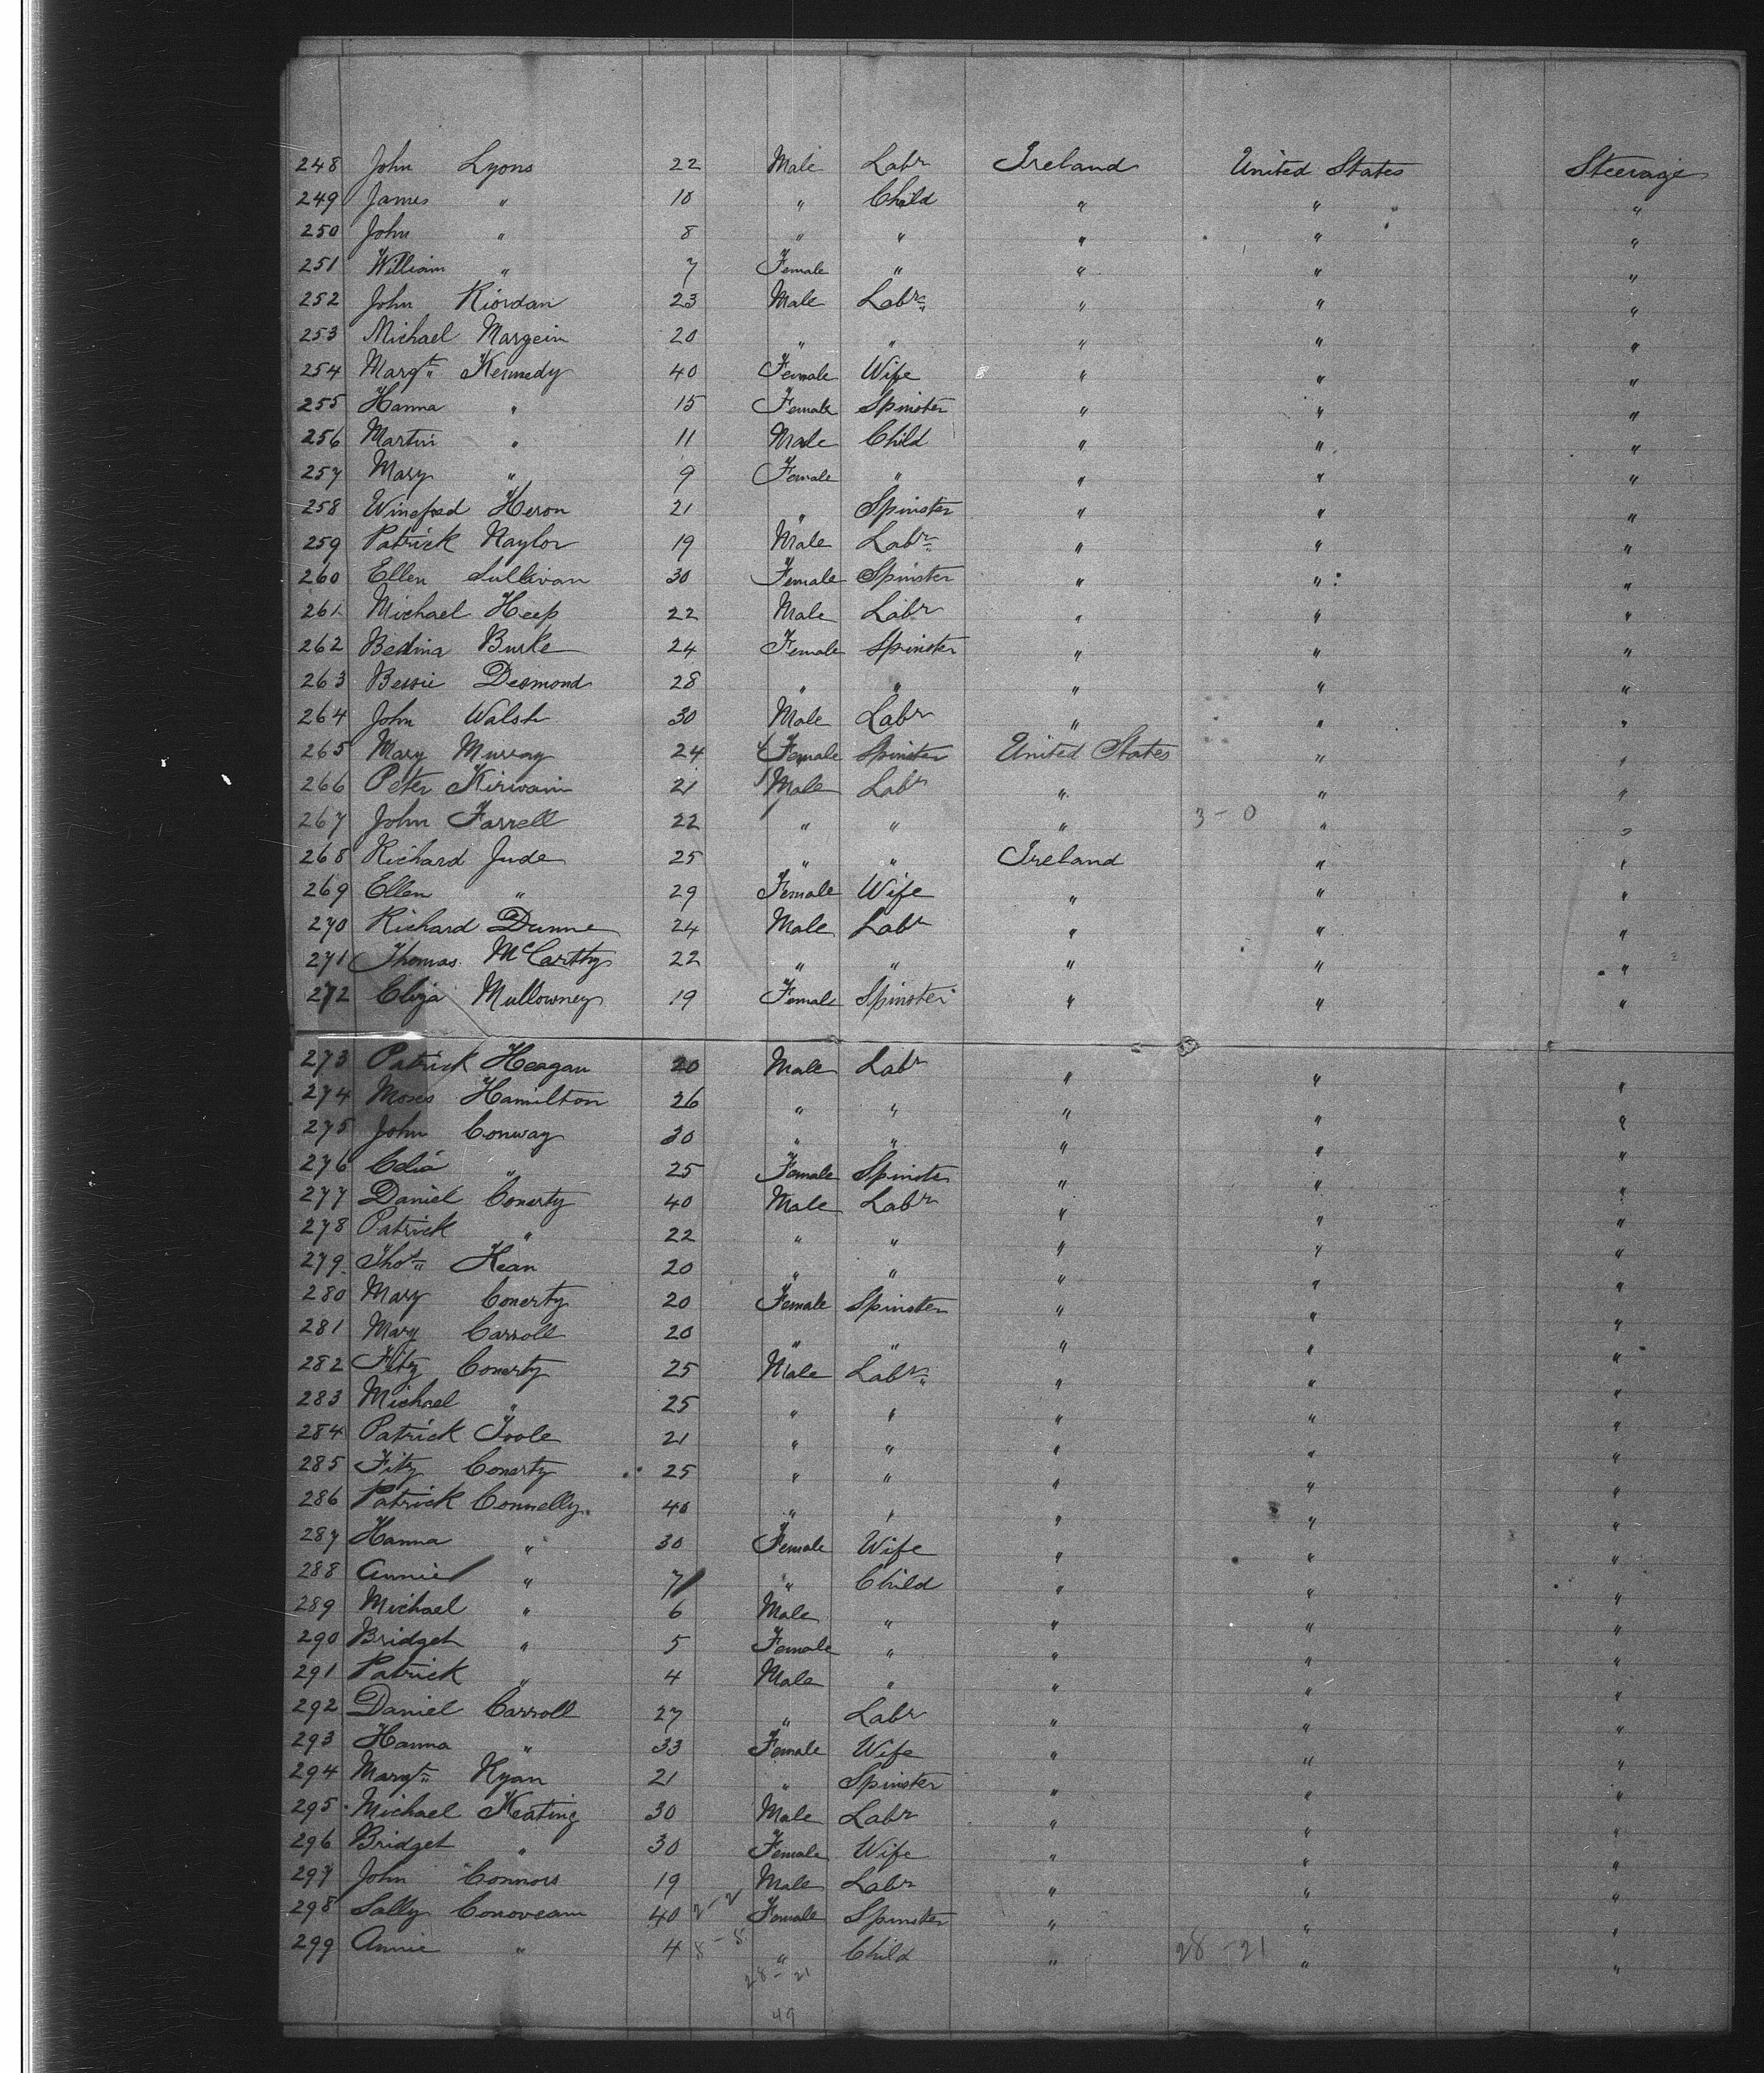 248 John Lyons 22 Male Labr Ireland United States Steerage
249 James " 10 " Child " " "
250 John " 8 " " " " "
251 William " 7 Female " " " "
252 John Riordan 23 Male Labr " " "
253 Michael Margein 20 " " " " "
254 Margt Kennedy 40 Female Wife " " "
255 Hanna " 15 Female Spinster " " "
256 Martin " 11 Male Child " " "
257 Mary " 9 Female " " " "
258 Winefred Heron 21 " Spinster " " "
259 Patrick Naylor 19 Male Labr " " "
260 Ellen Sullivan 30 Female Spinster " " "
261 Michael Heep 22 Male Labr " " "
262 Bedina Burke 24 Female Spinster " " "
263 Bessie Desmond 28 " " " " "
264 John Walsh 30 Male Labr " " "
265 Mary Murray 24 Female Spinster United States " "
266 Peter Kirwain 21 Male Labr " " "
267 John Farrell 22 " " " 3-0 " "
268 Richard Jude 25 " " Ireland " "
269 Ellen " 29 Female Wife " " "
270 Richard Dunne 24 Male Labr " " "
271 Thomas McCarthy 22 " " " " "
272 Eliza Mullowney 19 Female Spinster " " "
273 Patrick Heagan 20 Male Labr " " "
274 Moses Hamilton 26 " " " " "
275 John Conway 30 " " " " "
276 Celia " 25 Female Spinster " " "
277 Daniel Conerty 40 Male Labr " " "
278 Patrick " 22 " " " " "
279 Thos Kean 20 " " " " "
280 Mary Conerty 20 Female Spinster " " "
281 Mary Carroll 20 " " " " "
282 Fitz Conerty 25 Male Labr " " "
283 Michael " 25 " " " " "
284 Patrick Toole 21 " " " " "
285 Fitz Conerty 25 " " " " "
286 Patrick Connelly 40 " " " " "
287 Hanna " 30 Female Wife " " "
288 Annie " 7 " Child " " "
289 Michael " 6 Male " " " "
290 Bridget " 5 Female " " " "
291 Patrick " 4 Male " " " "
292 Daniel Carroll 27 " Labr " " "
293 Hanna " 33 Female Wife " " "
294 Margt Ryan 21 " Spinster " " "
295 Michael Keating 30 Male Labr " " "
296 Bridget " 30 Female Wife " " "
297 John Connors 19 Male Labr " " "
298 Sally Conoveam 40 2-2 Female Spinster " " "
299 Annie " 4 5-5 " Child " 28-21 " "
28-21
49